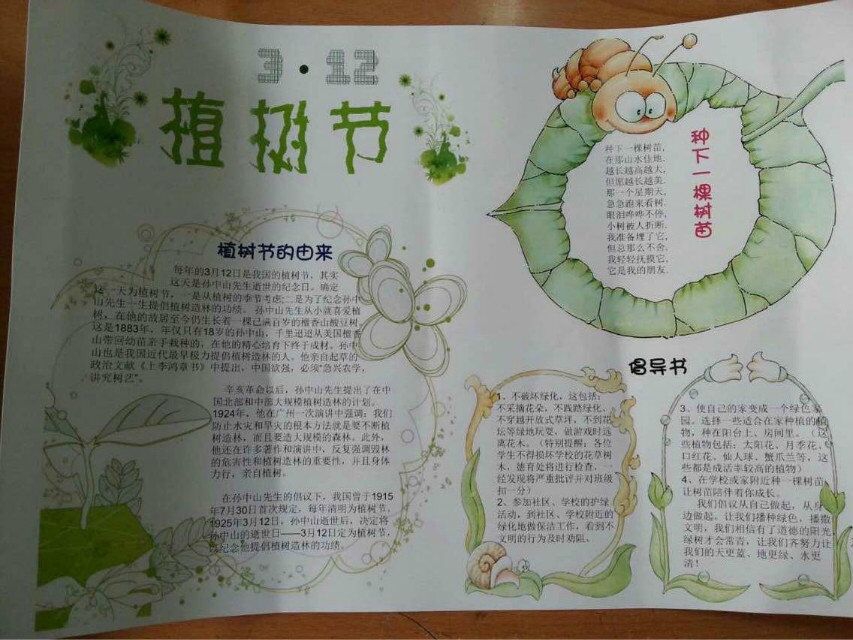 3·12
植树节
植树节的由来
每年的3月12日是我国的植树节，其实
这天是孙中山先生逝世的纪念日。确定
这一天为植树节，一是从植树的季节考虑；二是为了纪念孙中
山先生一生提倡植树造林的功绩。孙中山先生从小就喜爱植
树，在他的故居至今仍生长着一棵已满百岁的檀香山酸豆树，
这是1883年，年仅只有18岁的孙中山，千里迢迢从美国檀香
山带回幼苗亲手栽种的，在他的精心培育下终于成材。孙中
山也是我国近代最早极力提倡植树造林的人，他亲自起草的
政治文献《上李鸿章书》中提出，中国欲强，必须“急兴农学，
讲究树艺”。
辛亥革命以后，孙中山先生提出了在中
国北部和中部大规模植树造林的计划。
1924年，他在广州一次演讲中强调：我们
防止水灾和旱灾的根本方法就是要不断植
树造林，而且要造大规模的森林。此外，
他还在许多著作和演讲中，反复强调毁林
的危害性和植树造林的重要性，并且身体
力行，亲自植树。
在孙中山先生的倡议下，我国曾于1915
年7月30日首次规定，每年清明为植树节，
1925年3月12日，孙中山逝世后，决定将
孙中山的逝世日——3月12日定为植树节，
以纪念他提倡植树造林的功绩。
种下一棵树苗
种下一棵树苗，
在那山水住地.
越长越高越大，
但愿越长越美.
那一个星期天，
急急跑来看树.
眼泪哗哗不停，
小树被人折断.
我准备埋了它，
但总那么不舍.
我轻轻抚摸它，
它是我的朋友.
倡导书
1、不破坏绿化，这包括：
不采摘花朵、不践踏绿化、
不穿越开放式草坪，不到花
坛等绿地玩耍，做游戏时远
离花木。（特别提醒，各位
学生不得损坏学校的花草树
木，她育处将进行检查，
经发现将严重批评并对班级
扣一分）
2、参加社区、学校的护绿
活动，到社区、学校附近的
绿化地做保洁工作，看到不
文明的行为及时劝阻。
3、使自己的家变成一个绿色家
园。选择一些适合在家种植的植
物，种在阳台上、房间里。（这
些植物包括：太阳花、月季花、
口红花、仙人球、蟹爪兰等，这
些都是成活率较高的植物）
4、在学校或家附近种一棵树苗，
让树苗陪伴看你成长。
我们倡议从自己做起，从身
边做起，让我们播种绿色、播撒
文明，我们相信有了道德的阳光
绿树才会常青，让我们齐努力让
我们的天更蓝、地更绿、水更
清！